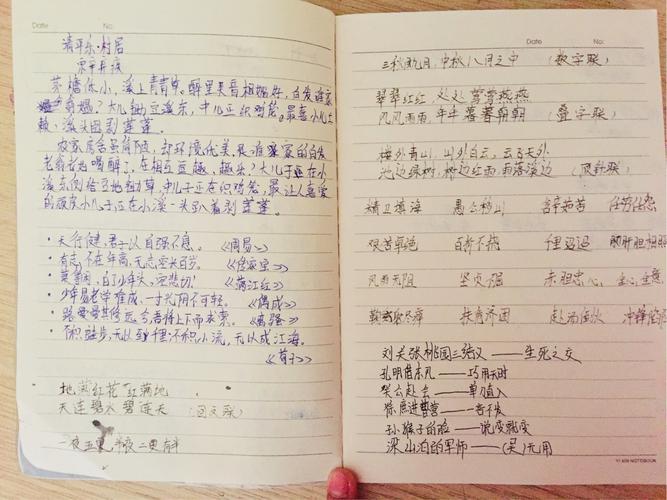 Date No:
清平乐·村居
宋辛弃疾
茅檐低小,溪上青青草。醉里吴音相媚好,白发谁家
翁媪?大儿锄豆溪东,中儿正织鸡笼。最喜小儿亡
赖,溪头卧剥莲蓬。
农家居舍虽简陋,却环境优美,是谁家的白发
老翁老
喝醉了,在相互逗趣
趣乐?大儿子正在小
溪东侧给豆地锄草,中儿子正在织鸡笼,最让人喜爱
的顽皮小儿子正在小溪一头趴着剥莲蓬。
·天行健,君子以自强不息。《周易》
·有志不在年高,无志空长百岁。
·莫等闲,白了少年头,空悲切!《满江红》
·少年易老学难成,一寸光阴不可轻。《偶成》
·路曼曼其修远兮,吾将上下而求索。《离骚》
·不积跬步,无以至千里;不积小流,无以成江海。
《荀子》
地满红花红满地
天连碧水碧连天 (回文联)
一夜五更,半夜二更有半
Date No:
三秋九月,中秋八月之中 (数字联)
翠翠红红,处处莺莺燕燕
风风雨雨,年年暮暮朝朝 (叠字联)
楼外青山,山外白云,云飞天外
池边绿树,树边红雨,雨落溪边 (顶针联)
精卫填海 愚公移山 含辛茹苦 任劳任怨
艰苦卓绝 百折不挠 千里迢迢 肝胆相照
风雨无阻 坚贞不屈 赤胆忠心
鞠躬尽瘁 扶危济困 赴汤蹈火 冲锋陷阵
刘关张桃园三结义——生死之交
孔明借东风——巧用天时
关云长赴会——单刀直入
徐庶进曹营——一言不发
孙猴子的脸——说变就变
梁山泊的军师——(吴)无用
NOTEBOOK